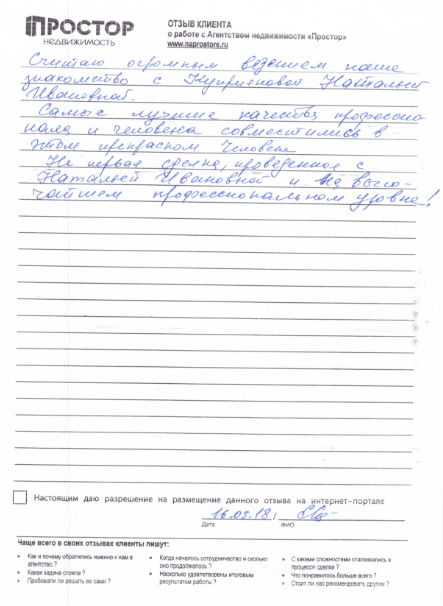 ПРОСТОР
НЕДВИЖИМОСТЬ
ОТЗЫВ КЛИЕНТА
о работе с Агентством недвижимости «Простор»
www.naprostore.ru
Считаю огромным везением наше
знакомство с Натальей
Ивановной.
Самые лучшие качества профессио
нала и человека совместились в
этом прекрасном Человеке
Не первая сделка, проведенная с
Натальей Ивановной и на высо-
чайшем профессиональном уровне!
Настоящим даю разрешение на размещение данного отзыва на интернет-портале
16.05.18,
Дата ФИО
Чаще всего в своих отзывах клиенты пишут:
Как и почему обратились именно к нам в
агентство ?
Какая задача стояла ?
Пробовали ли решать ее сами ?
Когда началось сотрудничество и сколько
оно продолжалось ?
Насколько удовлетворены итоговым
результатом работы ?
С какими сложностями сталкивались в
процессе сделки ?
Что понравилось больше всего ?
Стоит ли нас рекомендовать другим ?